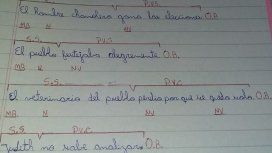 P.V.C.
El hombre chanclero gano las elecciones. O.B.
MD. N NV
S.S. P.V.C
El pueblo festejaba alegremente O.B.
MD. N NV
S.S. P.V.C
El veterinario del pueblo perdio por que se gusto O.B.
MD N NV NV
S.S. P.V.C
Judith no sabe analizar O.B.